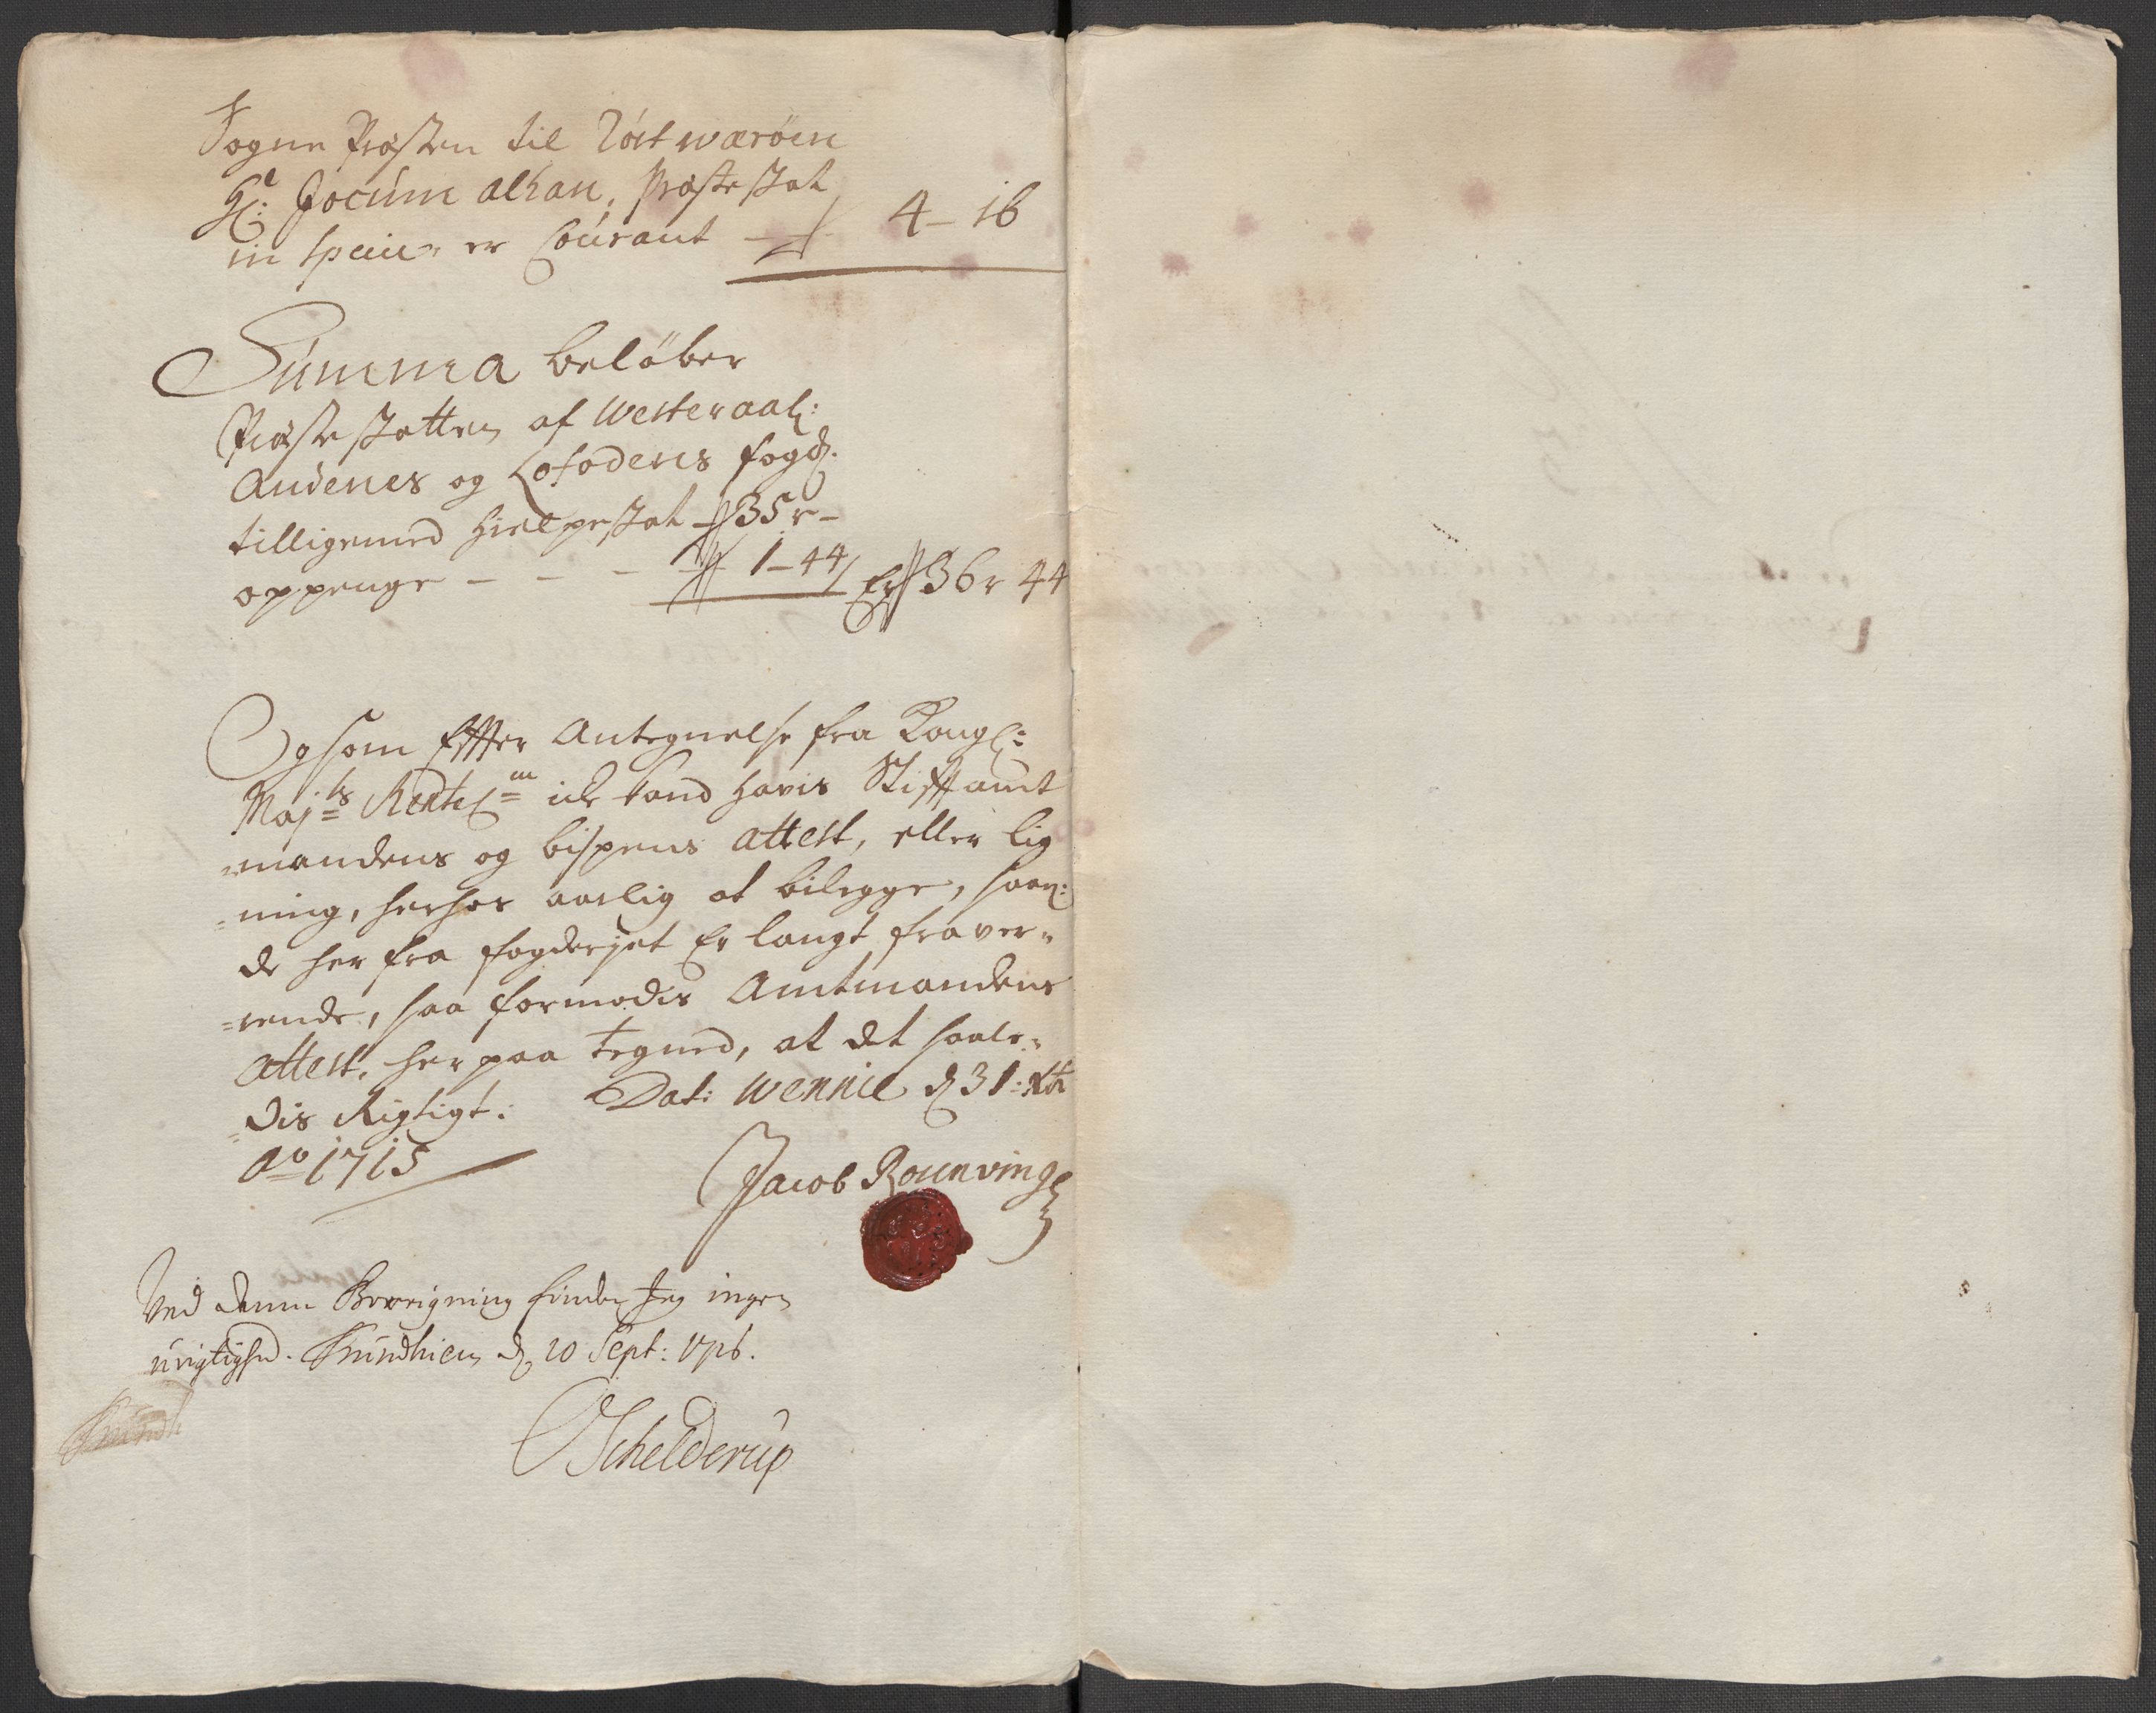 Sogne Præsten til Röst wæröen
Hr: Jocum alhan, Præsteskat
in Specie er Courant — 4 – 16
Summa beløber
Præste skatten af Westeraal:
Andenes og Lofodens fogd.
tilligemed Hielpeskat 35 r –
oppenge – – – 1 – 44 Er 36 r 44
Og som Effter Antegnelse fra Kongl:
Maj:ts Rentec:m icke kand hafvis Stiftamt
mandens og bispens attest, eller lig
=ning, herhos aarlig at bilegge, saasom:
de her fra fogderjet Er langt fraver=
=rende, saa formodis Amtmandens
attest, her paa tegned, at det saale=
=dis Rigtigt. Dat: Wennie d 31: Xbr
Ao 1715
Jacob Rounving
Ved denne Beregning finder Jeg ingen
urigtighed. Trundhiem d. 20 Sept: 1716.
Trundh
OSchelderup